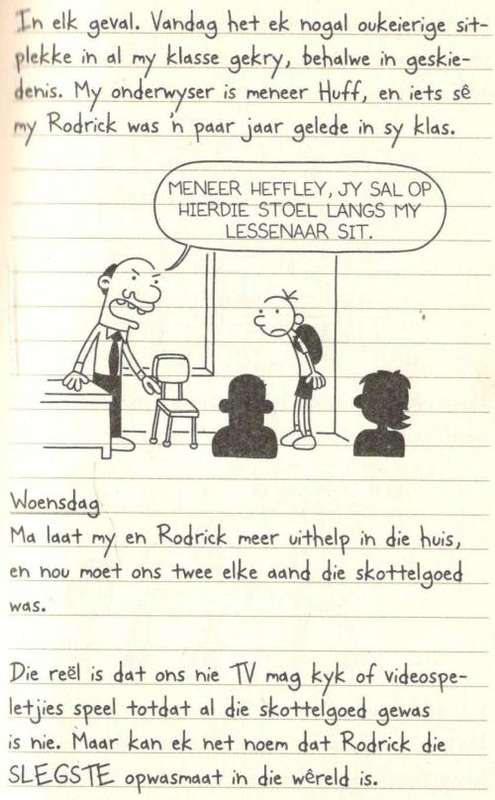 In elk geval. Vandag het ek nogal oukeierige sit-
plekke in al my klasse gekry, behalwe in geskie-
denis. My onderwyser is meneer Huff, en iets sê
my Rodrick was 'n paar jaar gelede in sy klas.
MENEER HEFFLEY, JY SAL OP
HIERDIE STOEL LANGS MY
LESSENAAR SIT.
Woensdag
Ma laat my en Rodrick meer uithelp in die huis,
en nou moet ons twee elke aand die skottelgoed
was.
Die reël is dat ons nie TV mag kyk of videospe-
letjies speel totdat al die skottelgoed gewas
is nie. Maar kan ek net noem dat Rodrick die
SLEGSTE opwasmaat in die wêreld is.